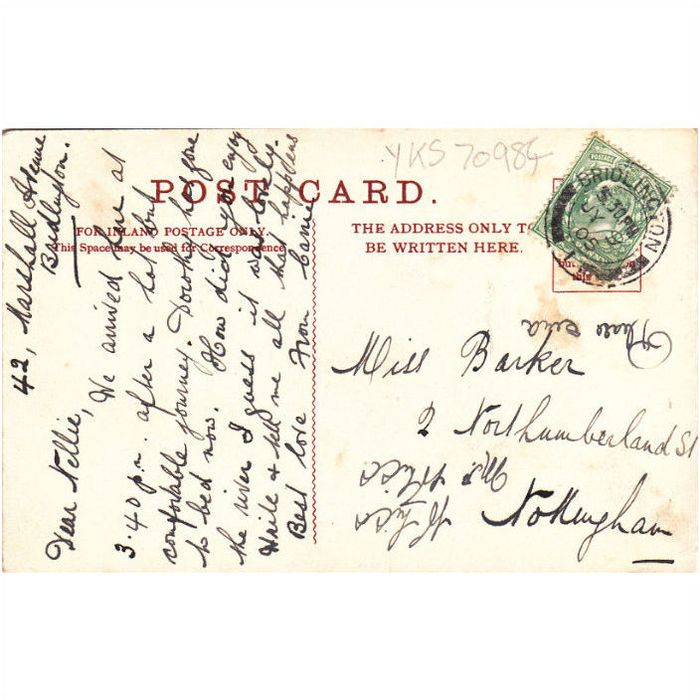 POST CARD.
FOR INLAND POSTAGE ONLY
This Space may be used for Correspondence
THE ADDRESS ONLY TO
BE WRITTEN HERE.
YKS 70984
42, Marshall Avenue
Bridlington.
Dear Nellie,
We arrived here at
3.40 p.m. after a hot but
comfortable journey. Dorothy has gone
to bed now. How did you enjoy
the river I guess it was lovely.
Write & tell me all that happens
Best love From Carrie
BRIDLINGTON
5.30 PM
JY
05
POSTAGE
Miss Barker
2 Northumberland St
Nottingham
Miss